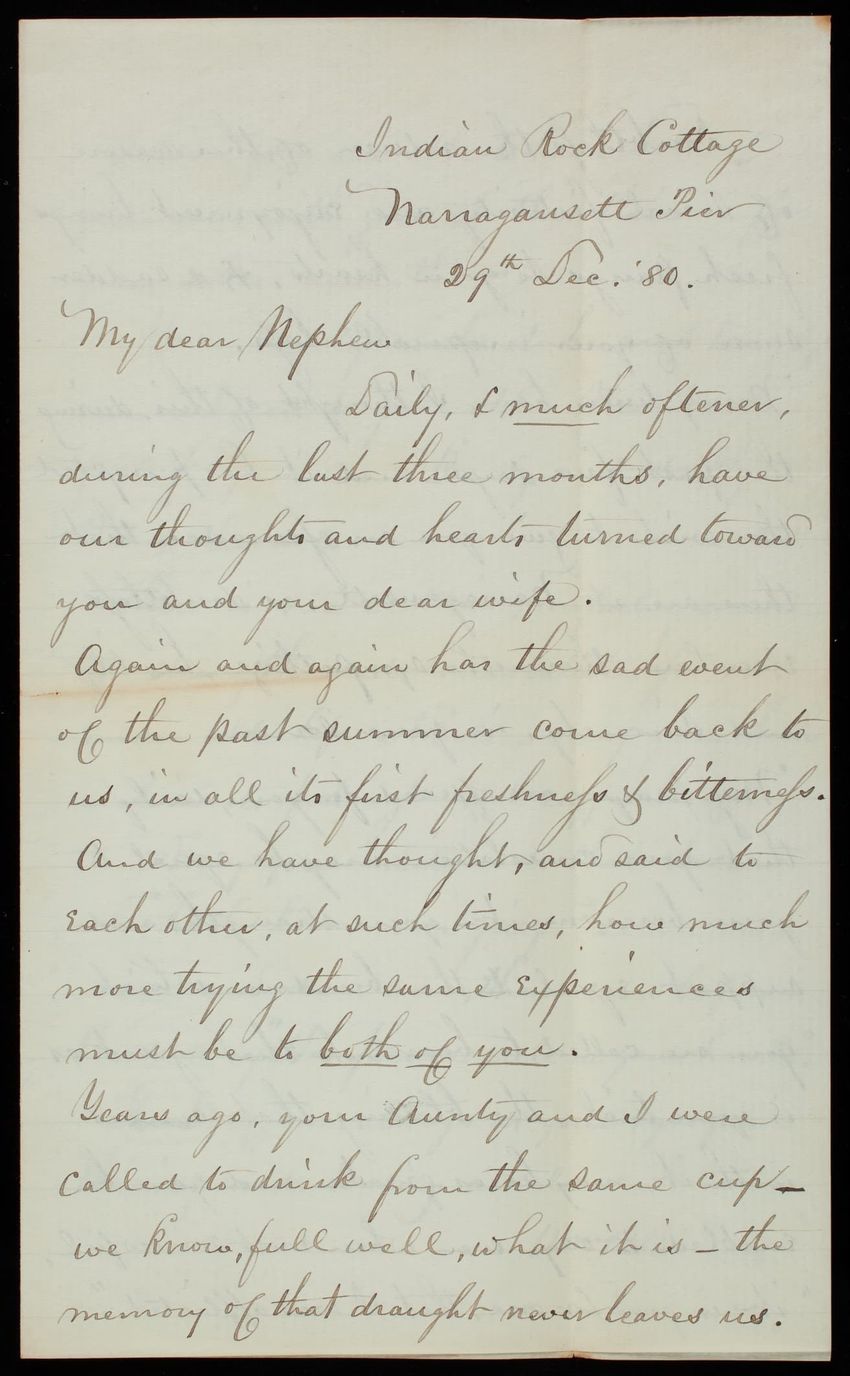 Indian Rock Cottage
Narragansett Pier
29th Dec. '80.
My dear Nephew
Daily, & much oftener,
during the last three months, have
our thoughts and hearts turned toward
you and your dear wife.
Again and again has the sad event
of the past summer come back to
us, in all its first freshness & bitterness.
And we have thought, and said to
each other, at such times, how much
more trying the same experiences
must be to both of you.
Years ago, your Aunty and I were
called to drink from the same cup —
we know, full well, what it is — the
memory of that draught never leaves us.